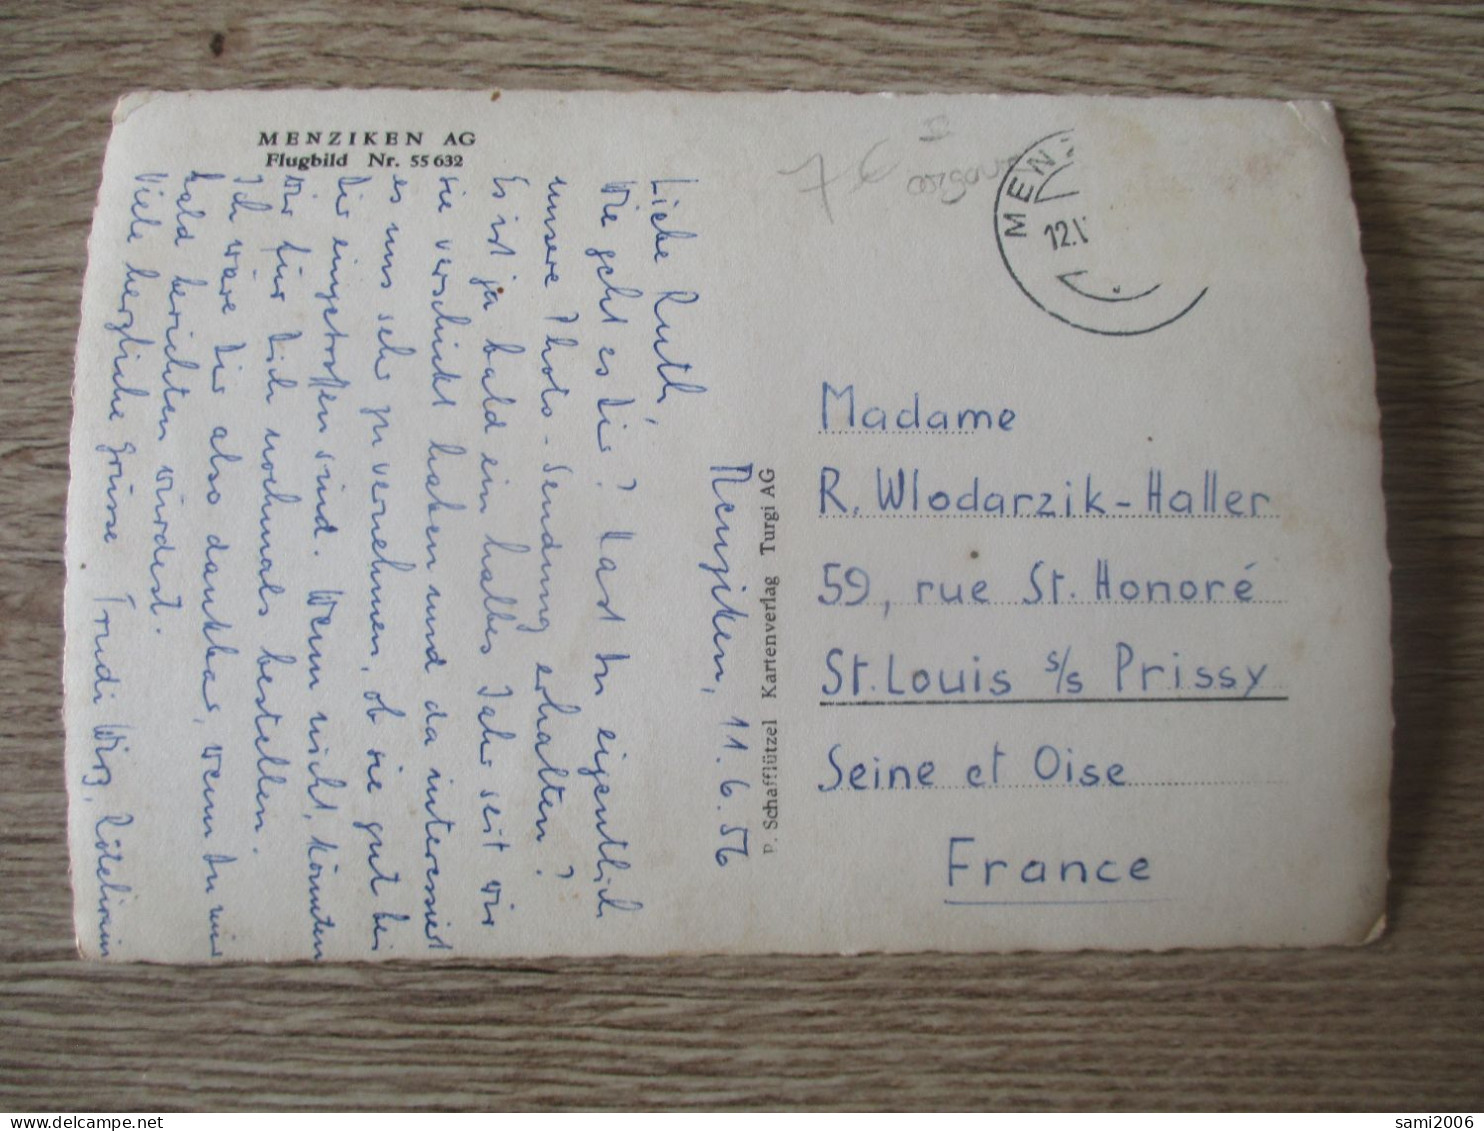 MENZIKEN AG
Flugbild Nr. 55 632
Menziken, 11.6.56
Liebe Ruth,
Wie geht es Dir? Hast Du eigentlich
unsere Photo-Sendung erhalten?
Es ist ja bald ein halbes Jahr seit wir
sie verschickt haben und da interessiert
es uns sehr zu vernehmen, ob sie gut bei
Dir eingetroffen sind. Wenn nicht, könnten
wir für Dich nochmals bestellen.
Ich wäre Dir also dankbar, wenn Du mir
bald berichten würdest.
Viele herzliche Grüsse Trudi Wirz,
P. Schafflützel Kartenverlag Turgi AG
7 €
MEN
12.
Madame
R. Wlodarzik-Haller
59, rue St. Honoré
St. Louis s/s Prissy
Seine et Oise
France
sami2006